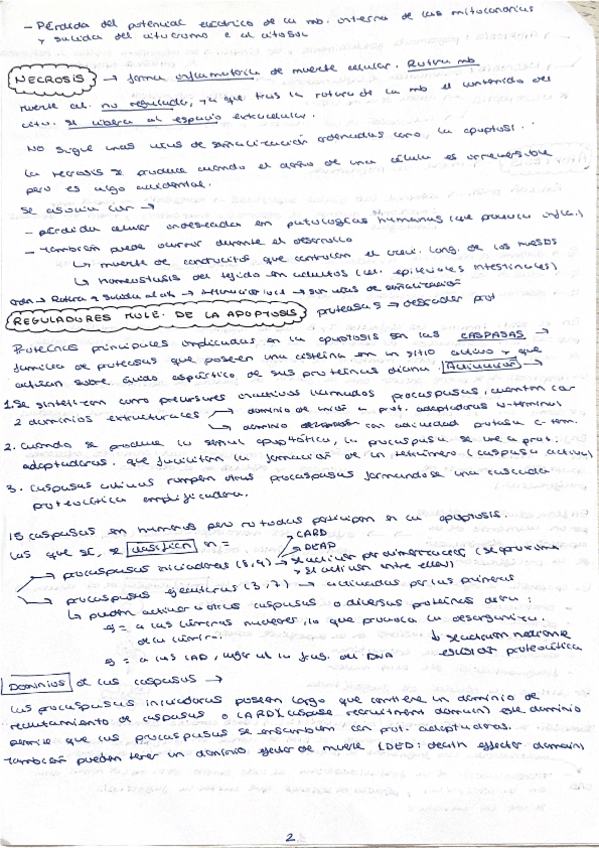 - Pérdida del potencial eléctrico de la mb. interna de las mitocondrias
y salida del citocromo c al citosol
NECROSIS → forma inflamatoria de muerte celular. Rotura mb
muerte cel. no regulada, ya que tras la rotura de la mb el contenido del
cito. se libera al espacio extracelular.
No sigue unas vías de señalización ordenadas como la apoptosi.
La necrosis se produce cuando el daño de una célula es irreversible
pero es algo accidental.
Se asocia con →
- pérdida celular indeseada en patologías humanas (que provoca infla.)
- También puede ocurrir durante el desarrollo
↳ muerte de condrocitos que controlan el creci. long. de los huesos
↳ homeostasis del tejido en adultos (cel. epiteliales intestinales)
orden → Rotura y salida al cito → → sin vías de señalización
REGULADORES MOLE. DE LA APOPTOSIS proteasas → degradar prot
Proteínas principales implicadas en la apoptosis son las CASPASAS →
familia de proteasas que poseen una cisteína en un sitio activo y que
actúan sobre ácido aspártico de sus proteínas diana. Activación →
1. Se sintetizan como precursores inactivos llamados procaspasas, cuentan con
2 dominios estructurales → dominio de unión a prot. adaptadoras N-terminal
↳ dominio con actividad proteasa C-term.
2. Cuando se produce la señal apoptótica, la procaspasa se une a prot.
adaptadoras que facilitan la formación de un tetrámero (caspasa activa)
3. Caspasas activas rompen otras procaspasas formandose una cascada
proteolítica amplificadora.
15 caspasas en humanos pero no todas participan en la apoptosis.
Las que sí, se clasifican en = CARD
DEAD
→ procaspasas iniciadoras (8, 9) → se activan por dimerización (se aproxima
y se activan entre ellas)
↳ procaspasas ejecutoras (3, 7) → activadas por las primeras
↳ pueden activar a otras caspasas o diversas proteínas como:
ej = a las láminas nucleares, lo que provoca la desorganiza.
de la lámina. ↓
ej = a las CAD, del DNA proteolítica
Dominios de las caspasas →
Las procaspasas iniciadoras poseen largo que contiene un dominio de
reclutamiento de caspasas o CARD (caspase recruitment domain) ese dominio
permite que las procaspasas se ensamblen con prot. adaptadoras.
También pueden tener un dominio efector de muerte (DED: death effector domain)
2